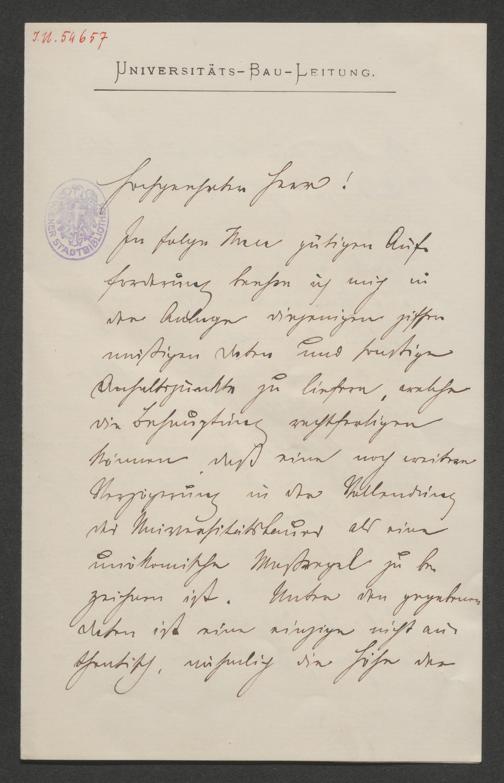 J.N. 54657
UNIVERSITÄTS-BAU-LEITUNG.
WIENER STADTBIBLIOTHEK
Hochgeehrter Herr!
In folge Ihrer gütigen Auf-
forderung beehre ich mich in
der Anlage diejenigen ziffer
mäßigen Daten und sonstigen
Anhaltspunkte zu liefern, welche
die Behauptung rechtfertigen
können, daß eine noch weitere
Verzögerung in der Vollendung
des Universitätsbaues als eine
unökomische Maßregel zu be
zeichnen ist. Unter den gegebenen
Daten ist eine einzige nicht au-
thentisch, nähmlich die Höhe der